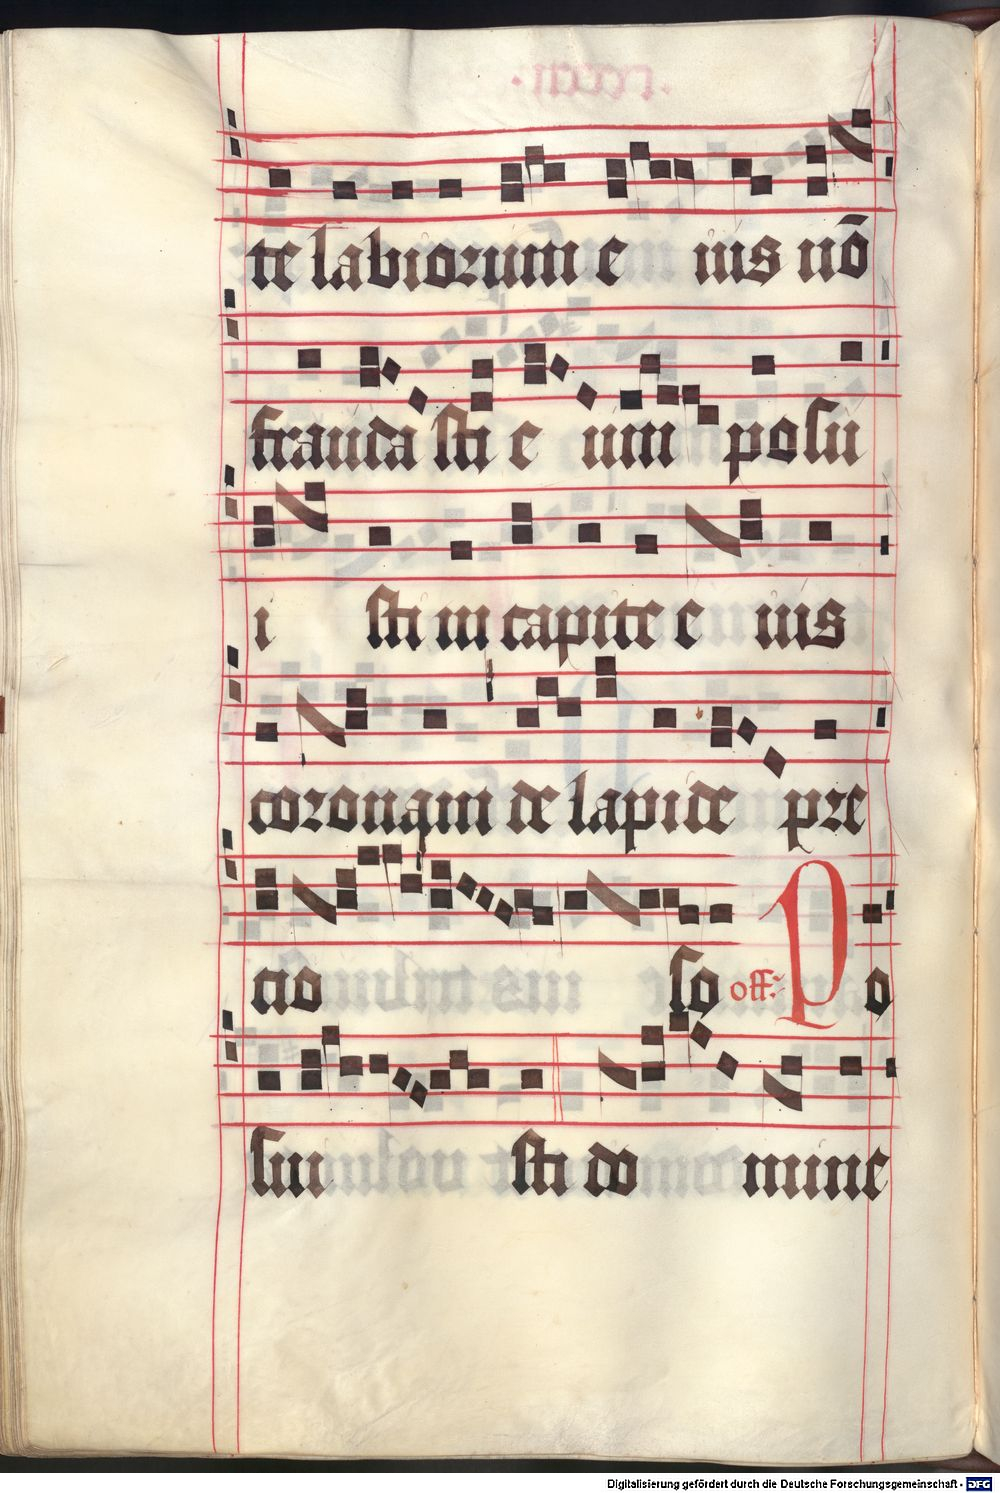 te labiorum e ius nō
frauda sti e um posu
i sti in capite e ius
coronam de lapide pre
cio so off: P o
sui sti do mine
Digitalisierung gefördert durch die Deutsche Forschungsgemeinschaft - DFG